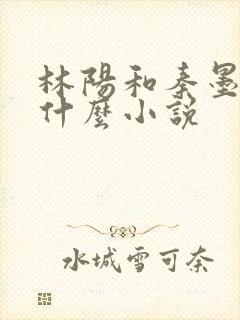 林陽和秦墨
什麼小説
水城雪可奈